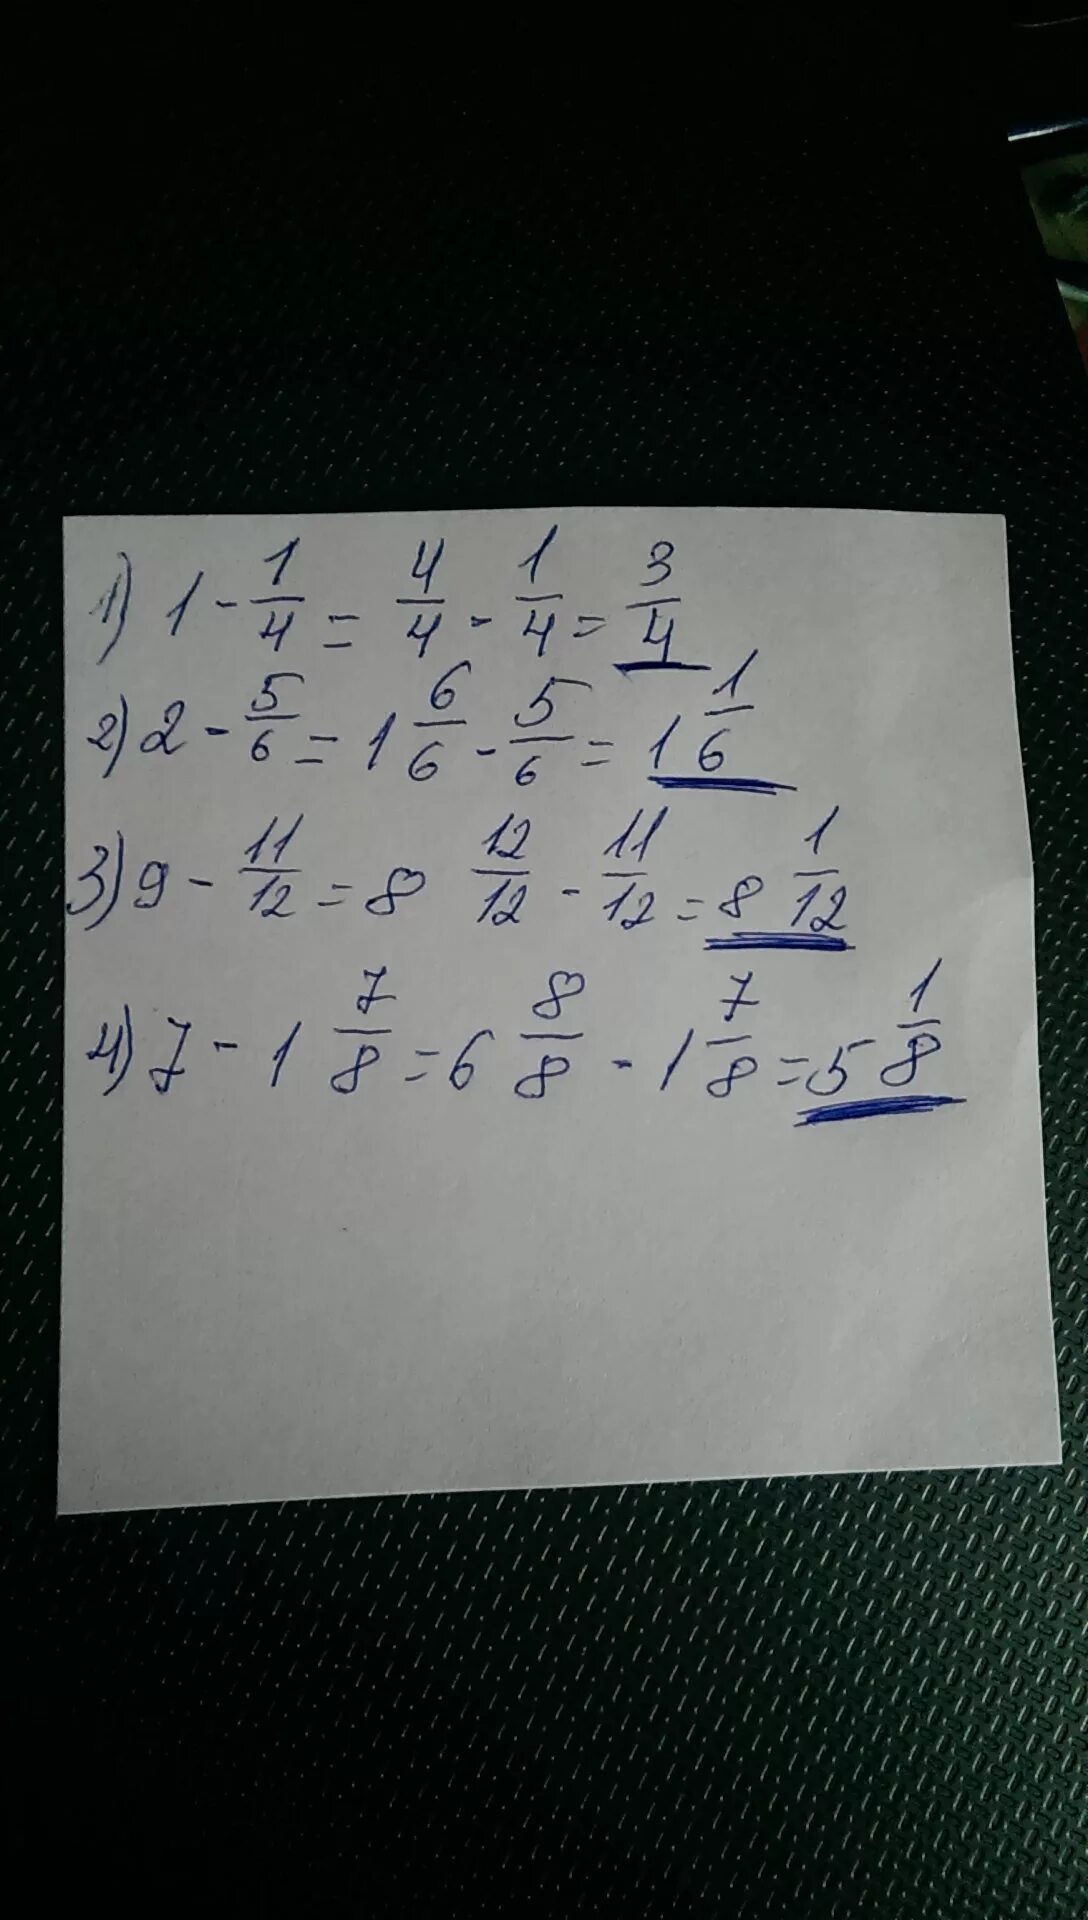 1) 1 - 1/4 = 4/4 - 1/4 = 3/4
2) 2 - 5/6 = 1 6/6 - 5/6 = 1 1/6
3) 9 - 11/12 = 8 12/12 - 11/12 = 8 1/12
4) 7 - 1 7/8 = 6 8/8 - 1 7/8 = 5 1/8